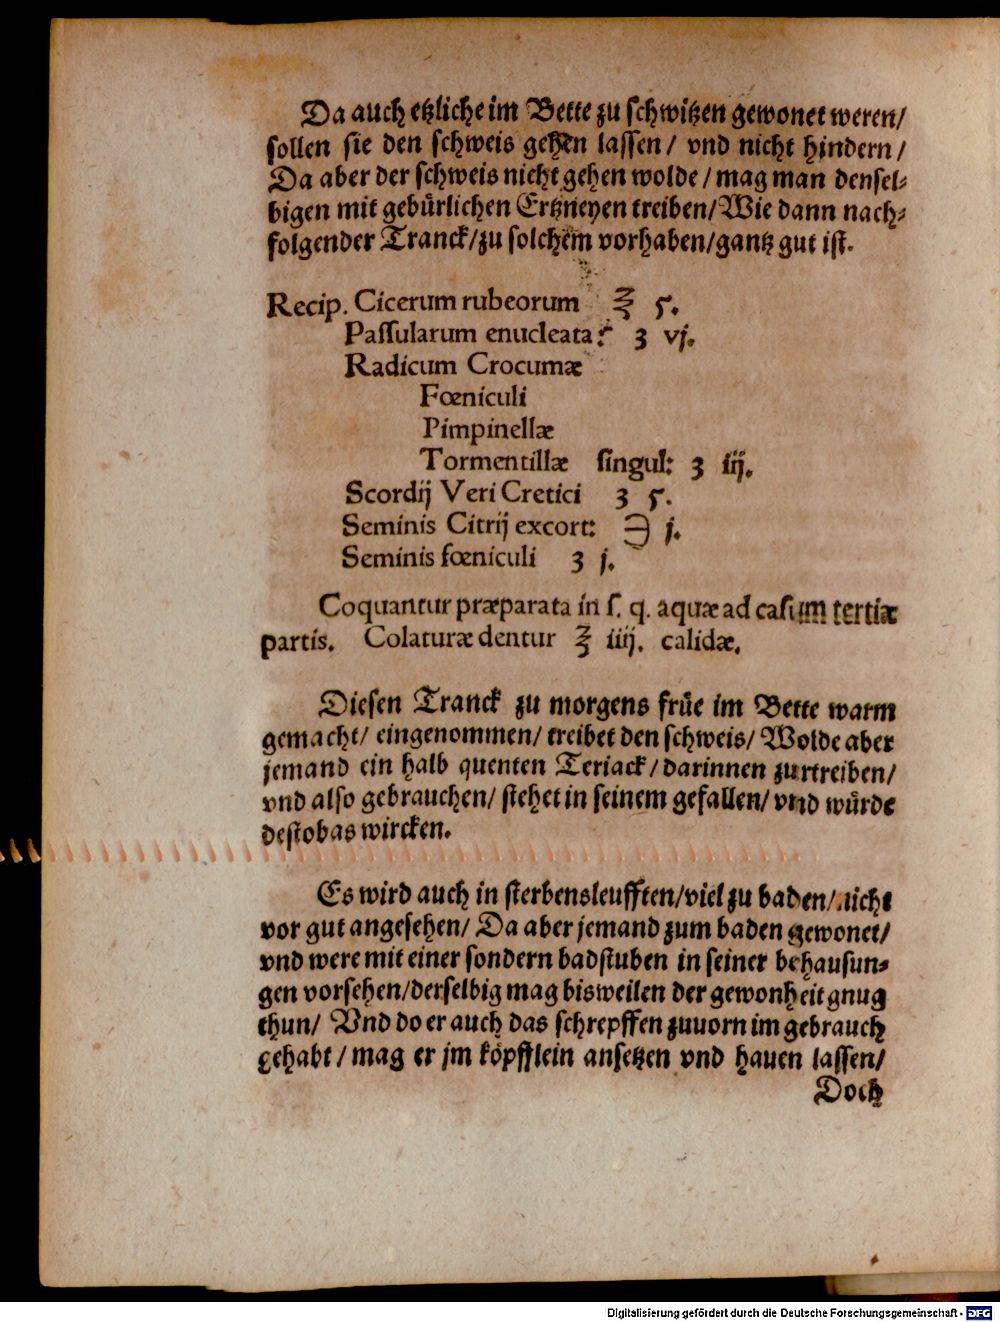 Da auch etzliche im Bette zu schwitzen gewonet weren/
sollen sie den schweis gehen lassen/ vnd nicht hindern/
Da aber der schweis nicht gehen wolde/ mag man densel⸗
bigen mit gebürlichen Ertzneyen treiben/ Wie dann nach⸗
folgender Tranck/ zu solchem vorhaben/ gantz gut ist.
Recip. Cicerum rubeorum ℥ ς.
Paſſularum enucleata: ʒ vj.
Radicum Crocumæ
Fœniculi
Pimpinellæ
Tormentillæ ſingul: ʒ iij.
Scordij Veri Cretici ʒ ς.
Seminis Citrij excort: ℈ j.
Seminis fœniculi ʒ j.
Coquantur præparata in ſ. q. aquæ ad caſum tertiæ
partis. Colaturæ dentur ℥ iiij. calidæ.
Diesen Tranck zu morgens früe im Bette warm
gemacht/ eingenommen/ treibet den schweis/ Wolde aber
jemand ein halb quenten Teriack/ darinnen zurtreiben/
vnd also gebrauchen/ stehet in seinem gefallen/ vnd würde
destobas wircken.
Es wird auch in sterbensleufften/ viel zu baden/ nicht
vor gut angesehen/ Da aber jemand zum baden gewonet/
vnd were mit einer sondern badstuben in seiner behausun⸗
gen vorsehen/ derselbig mag bisweilen der gewonheit gnug
thun/ Vnd do er auch das schrepffen zuuorn im gebrauch
gehabt/ mag er jm köpfflein ansetzen vnd hauen lassen/
Doch
Digitalisierung gefördert durch die Deutsche Forschungsgemeinschaft - DFG